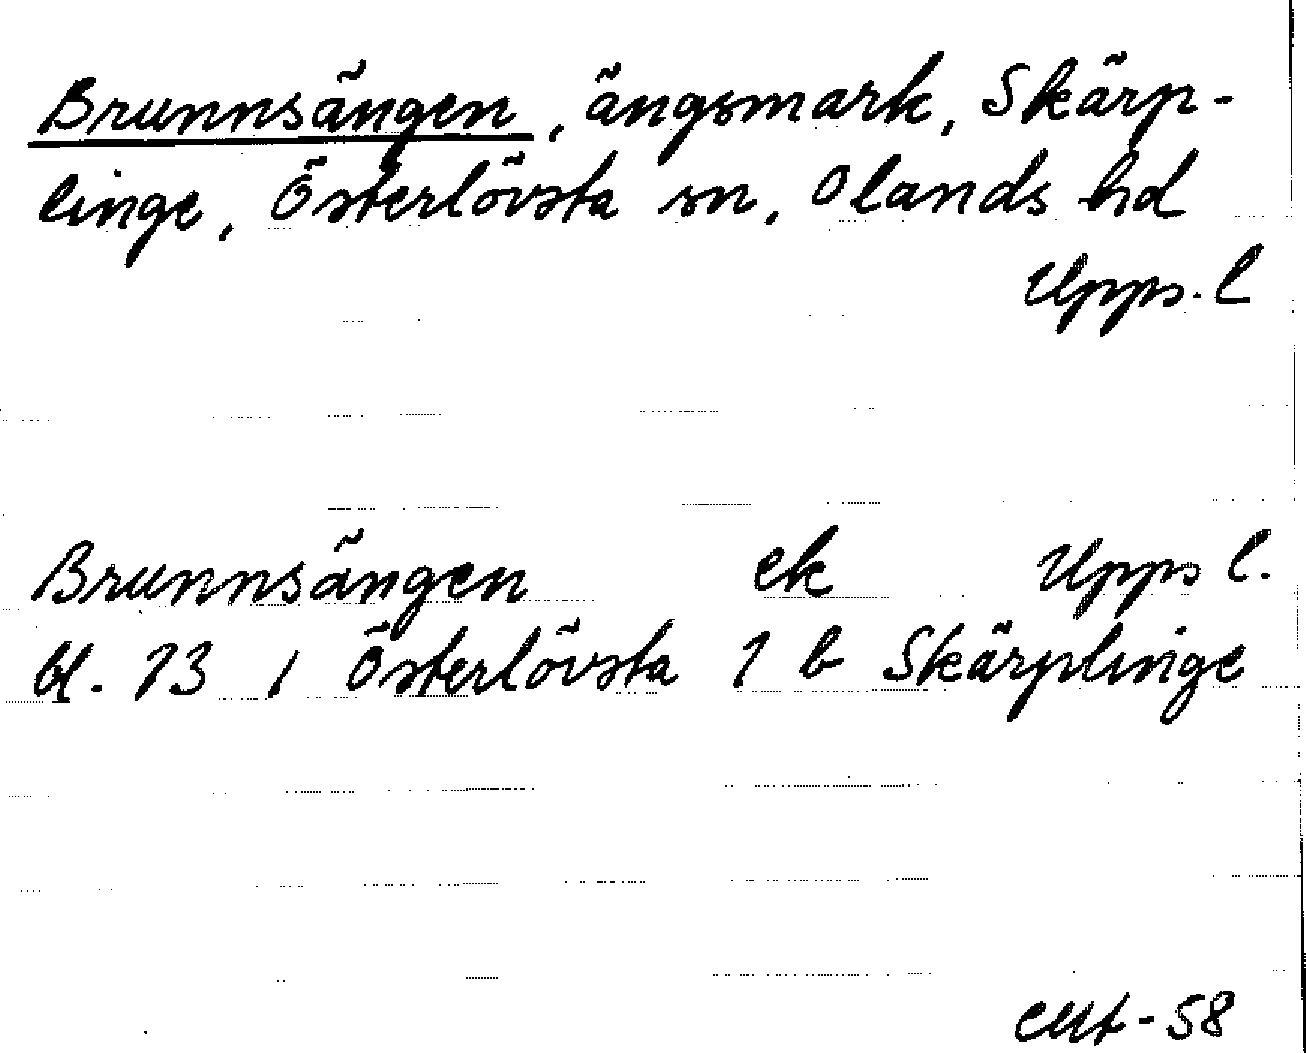 Brunnsängen, ängsmark, Skärp-
linge, Österlövsta sn, Olands hd
Upps. l
Brunnsängen ek Upps l.
bl. 73 / Österlövsta 1 b Skärplinge
-58